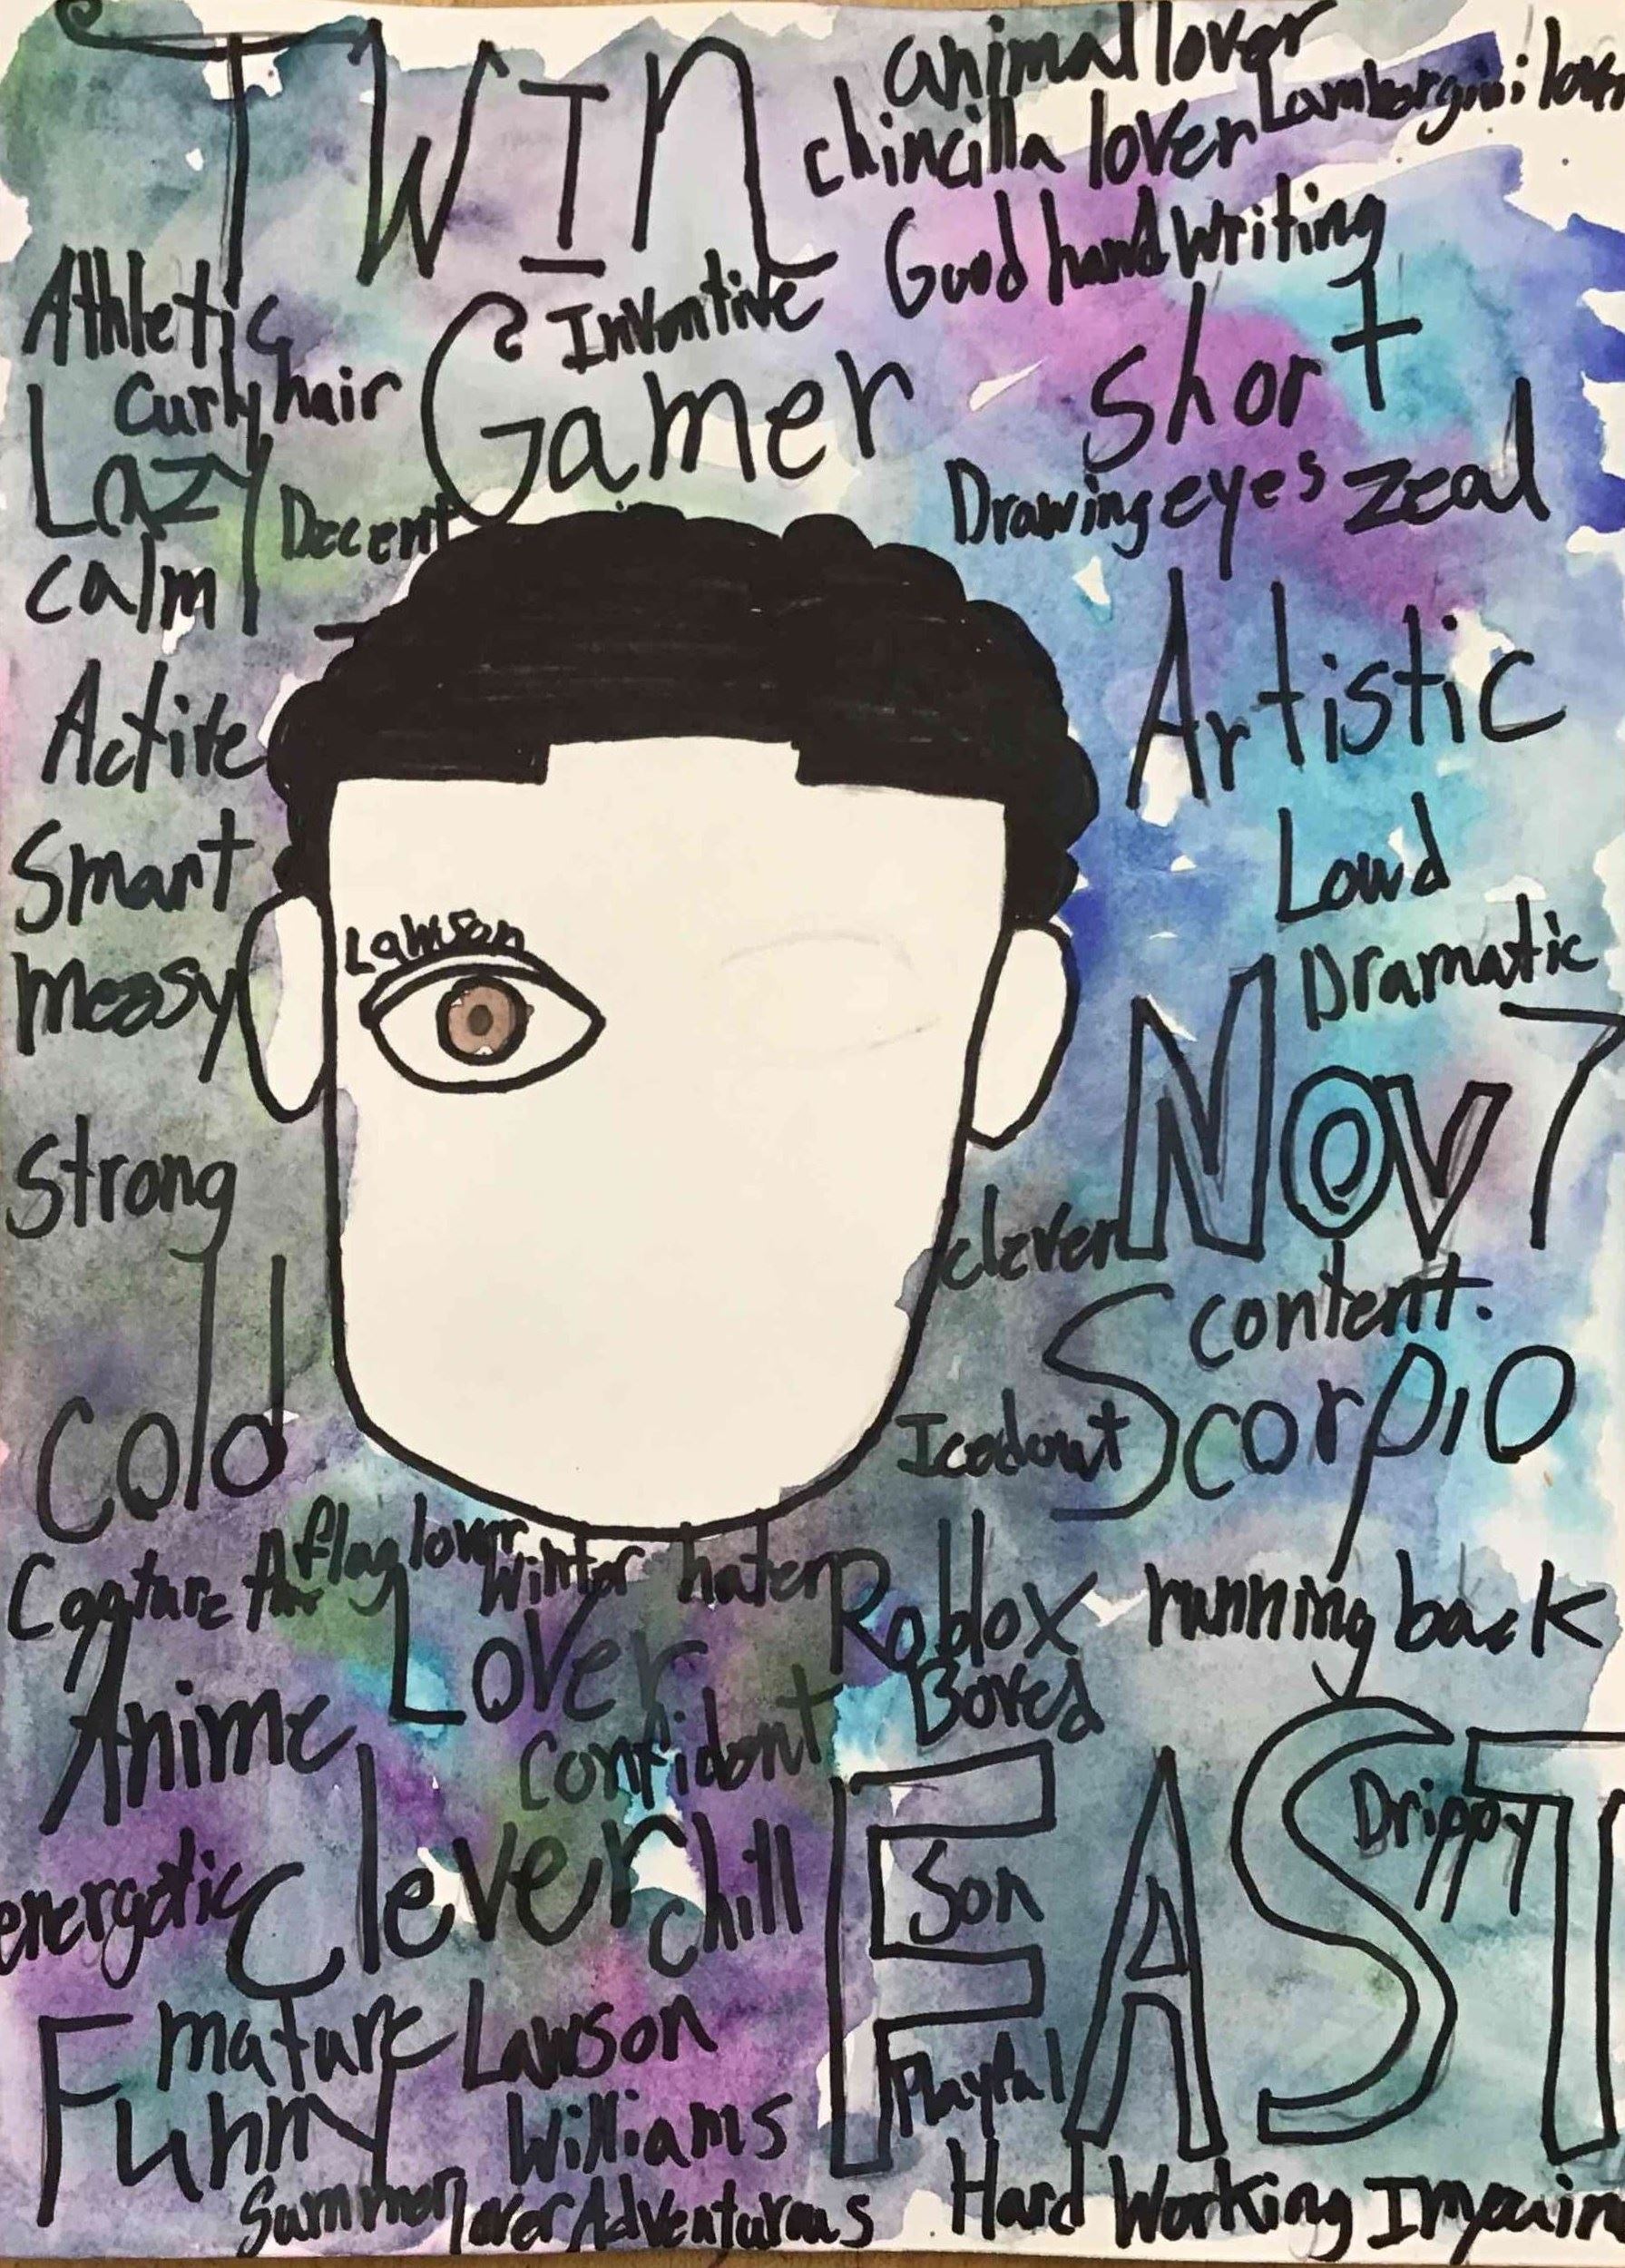 TWIN
animal lover
chincilla lover
Good handwriting
Athletic
Inventive
Curly hair
Gamer
short
Lazy
Decent
Drawing eyes
zeal
calm
Artistic
Active
Smart
Loud
Lawson
Dramatic
measy
Nov 7
Strong
clever
content.
Scorpio
Cold
flag lover
winter hater
Roblox
running back
Lover
Anime
Bored
Confident
Drippy
energetic
Clever
chill
Son
EAST
mature
Lawson
Funny
Williams
Playful
Summer lover
Adventurous
Hard Working